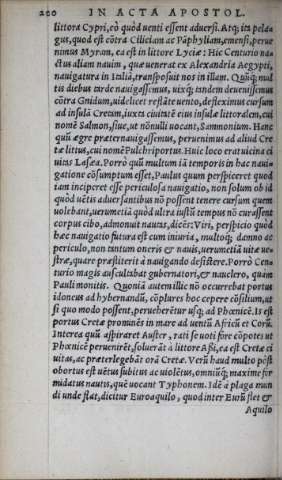 200 IN ACTA APOSTOL.
littora Cypri, eò quòd uenti essent aduersi. Atq; ita pela
gus, quod est cōtra Ciliciam ac Pāphyliam, emensi, perue
nimus Myram, ea est in littore Lyciæ: Hic Centurio na-
ctus aliam nauim, quæ uenerat ex Alexandria Aegypti,
nauigatura in Italiā, transposuit nos in illam. Quūq; mul
tis diebus tarde nauigassemus, uixq; tandem deuenissemus
cōtra Gnidum, uidelicet reflāte uento, defleximus cursum
ad insulā Cretam, iuxta ciuitatē eius insulæ littoralem, cui
nomē Salmon, siue, ut nōnulli uocant, Sammonium. Hanc
quū ægre præternauigassemus, peruenimus ad aliud Cre
tæ litius, cui nomē Pulchriportus. Huic loco erat uicina ci
uitas Lasæa. Porrò quū multum iā temporis in hac naui-
gatione cōsumptum esset, Paulus quum perspiceret quod
iam inciperet esse periculosa nauigatio, non solum ob id
quòd uētis aduersantibus nō possent tenere cursum quem
uolebant, uerumetiā quòd ultra iustū tempus nō curassent
corpus cibo, admonuit nautas, dicēs: Viri, perspicio quòd
hæc nauigatio futura est cum iniuria, multoq; damno ac
periculo, non tantum oneris & nauis, uerumetiā uitæ ue-
stræ, quare præstiterit à nauigando desistere. Porrò Cen
turio magis auscultabat gubernatori, & nauclero, quàm
Pauli monitis. Quoniā autem illic nō occurrebat portus
idoneus ad hybernandū, cōplures hoc cepere cōsilium, ut
si quo modo possent, perueheretur usq; ad Phœnicē. Is est
portus Cretæ promunēs in mare ad uentū Africū et Corū.
Interea quū aspiraret Auster, rati se uoti fore cōpotes ut
Phœnicē peruenirēt, soluerūt à littore Assi, ea est Cretæ ci
uitas, ac præterlegebāt orā Cretæ. Verū haud multo pōst
obortus est uētus subitus ac uiolētus, omniūq; maxime for
midatus nautis, quē uocant Typhonem. Idē à plaga mun
di unde flat, dicitur Euroaquilo, quòd inter Eurū flet &
Aquilo